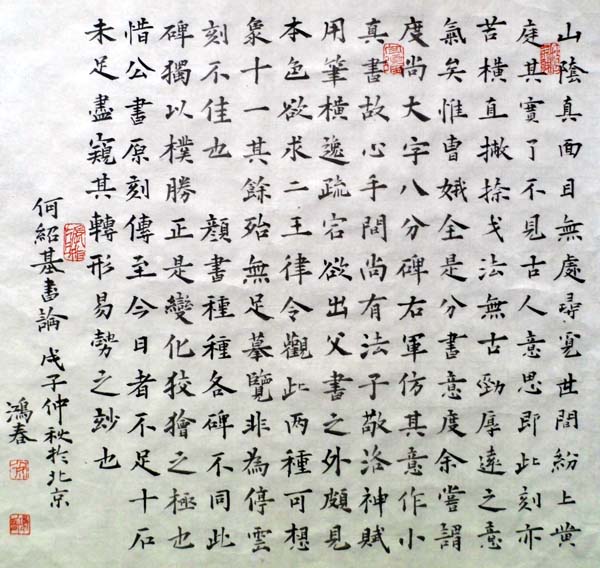 山陰真面目無處尋覓世間紛上黄
庭其實了不見古人意思即此刻亦
苦橫直撇捺戈法無古勁厚遠之意
氣矣惟曹娥全是分書意度余嘗謂
度尚大字八分碑右軍仿其意作小
真書故心手間尚有法子敬洛神賦
用筆橫逸疏宕欲出父書之外頗見
本色欲求二王律令觀此兩種可想
象十一其餘殆無足摹覽非為停雲
刻不佳也 顏書種種各碑不同此
碑獨以樸勝正是變化狡獪之極也
惜公書原刻傳至今日者不足十石
未足盡窺其轉形易勢之玅也
何紹基書論 戊子仲秋於北京
鴻春